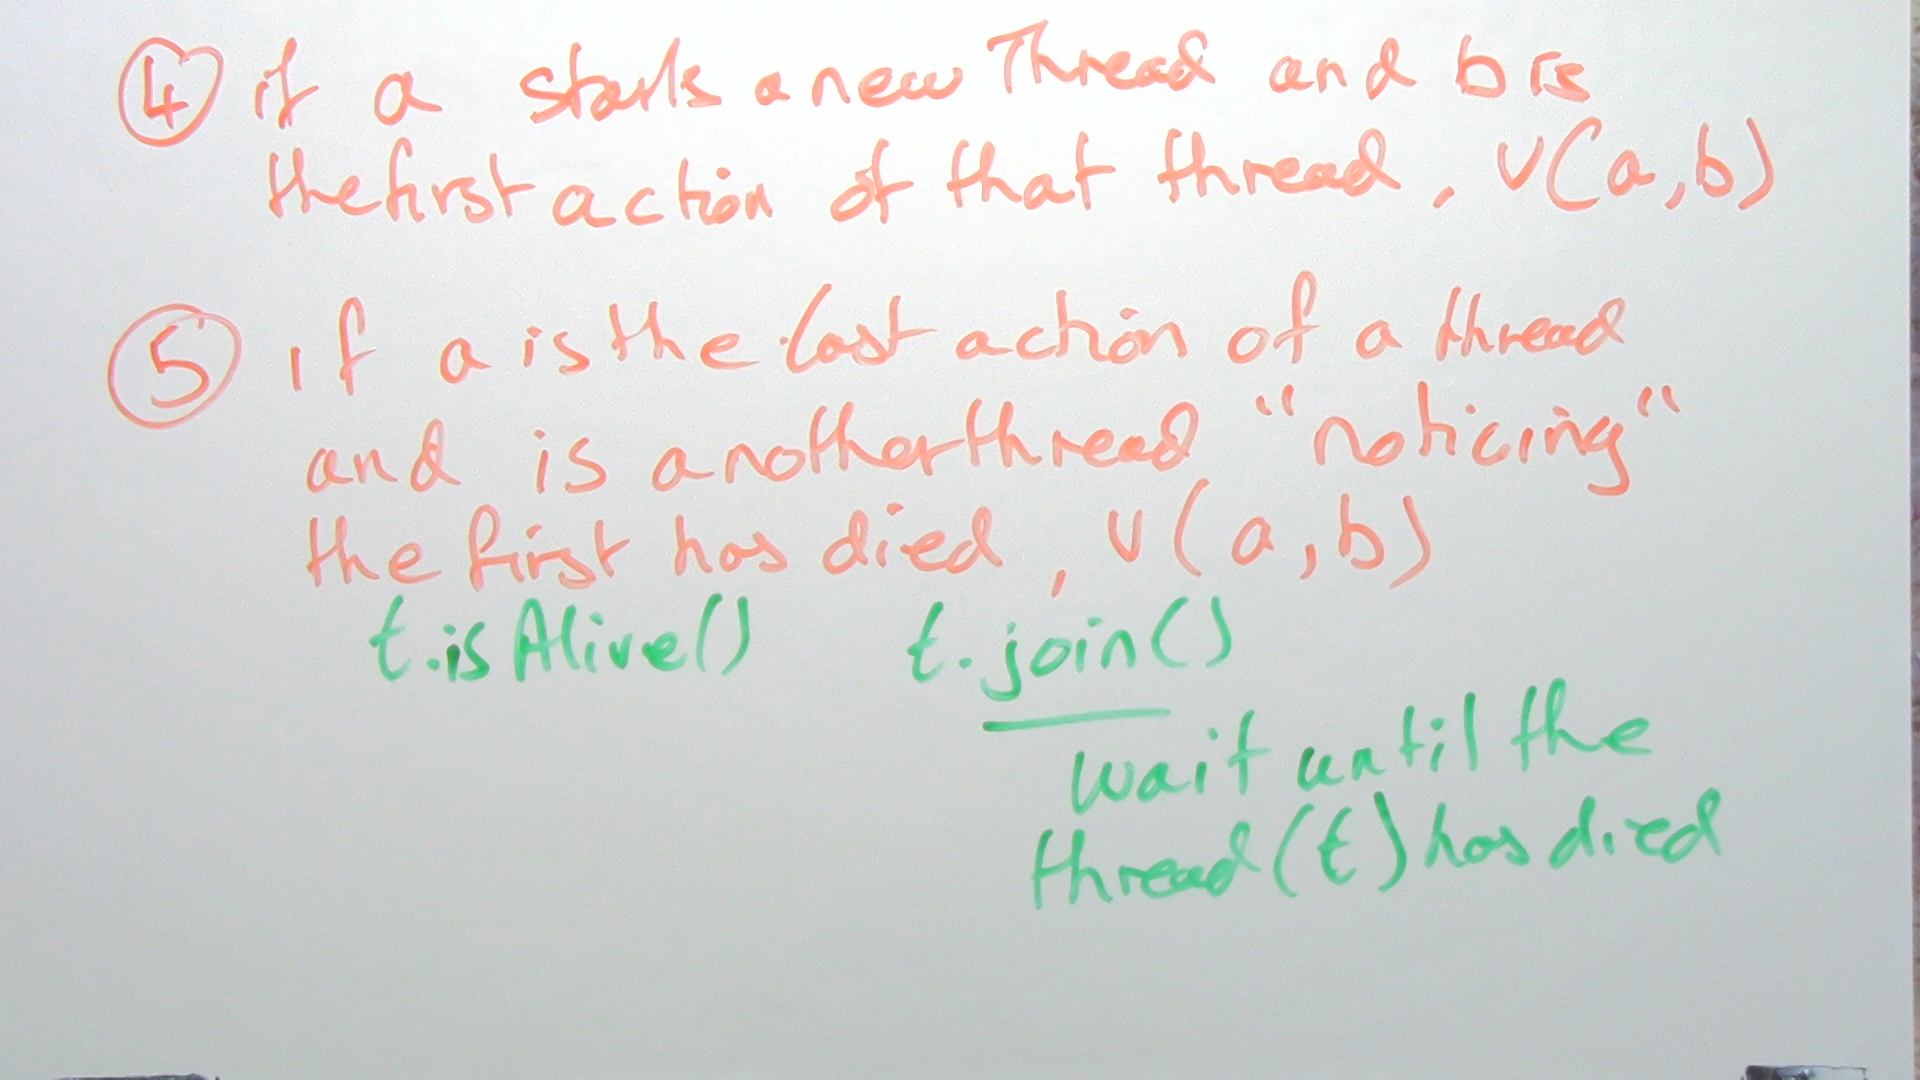 ④ if a starts a new Thread and b is
the first action of that thread, v(a,b)
⑤ if a is the last action of a thread
and is another thread "noticing"
the first has died, v(a,b)
t.isAlive() t.join()
wait until the
thread (t) has died